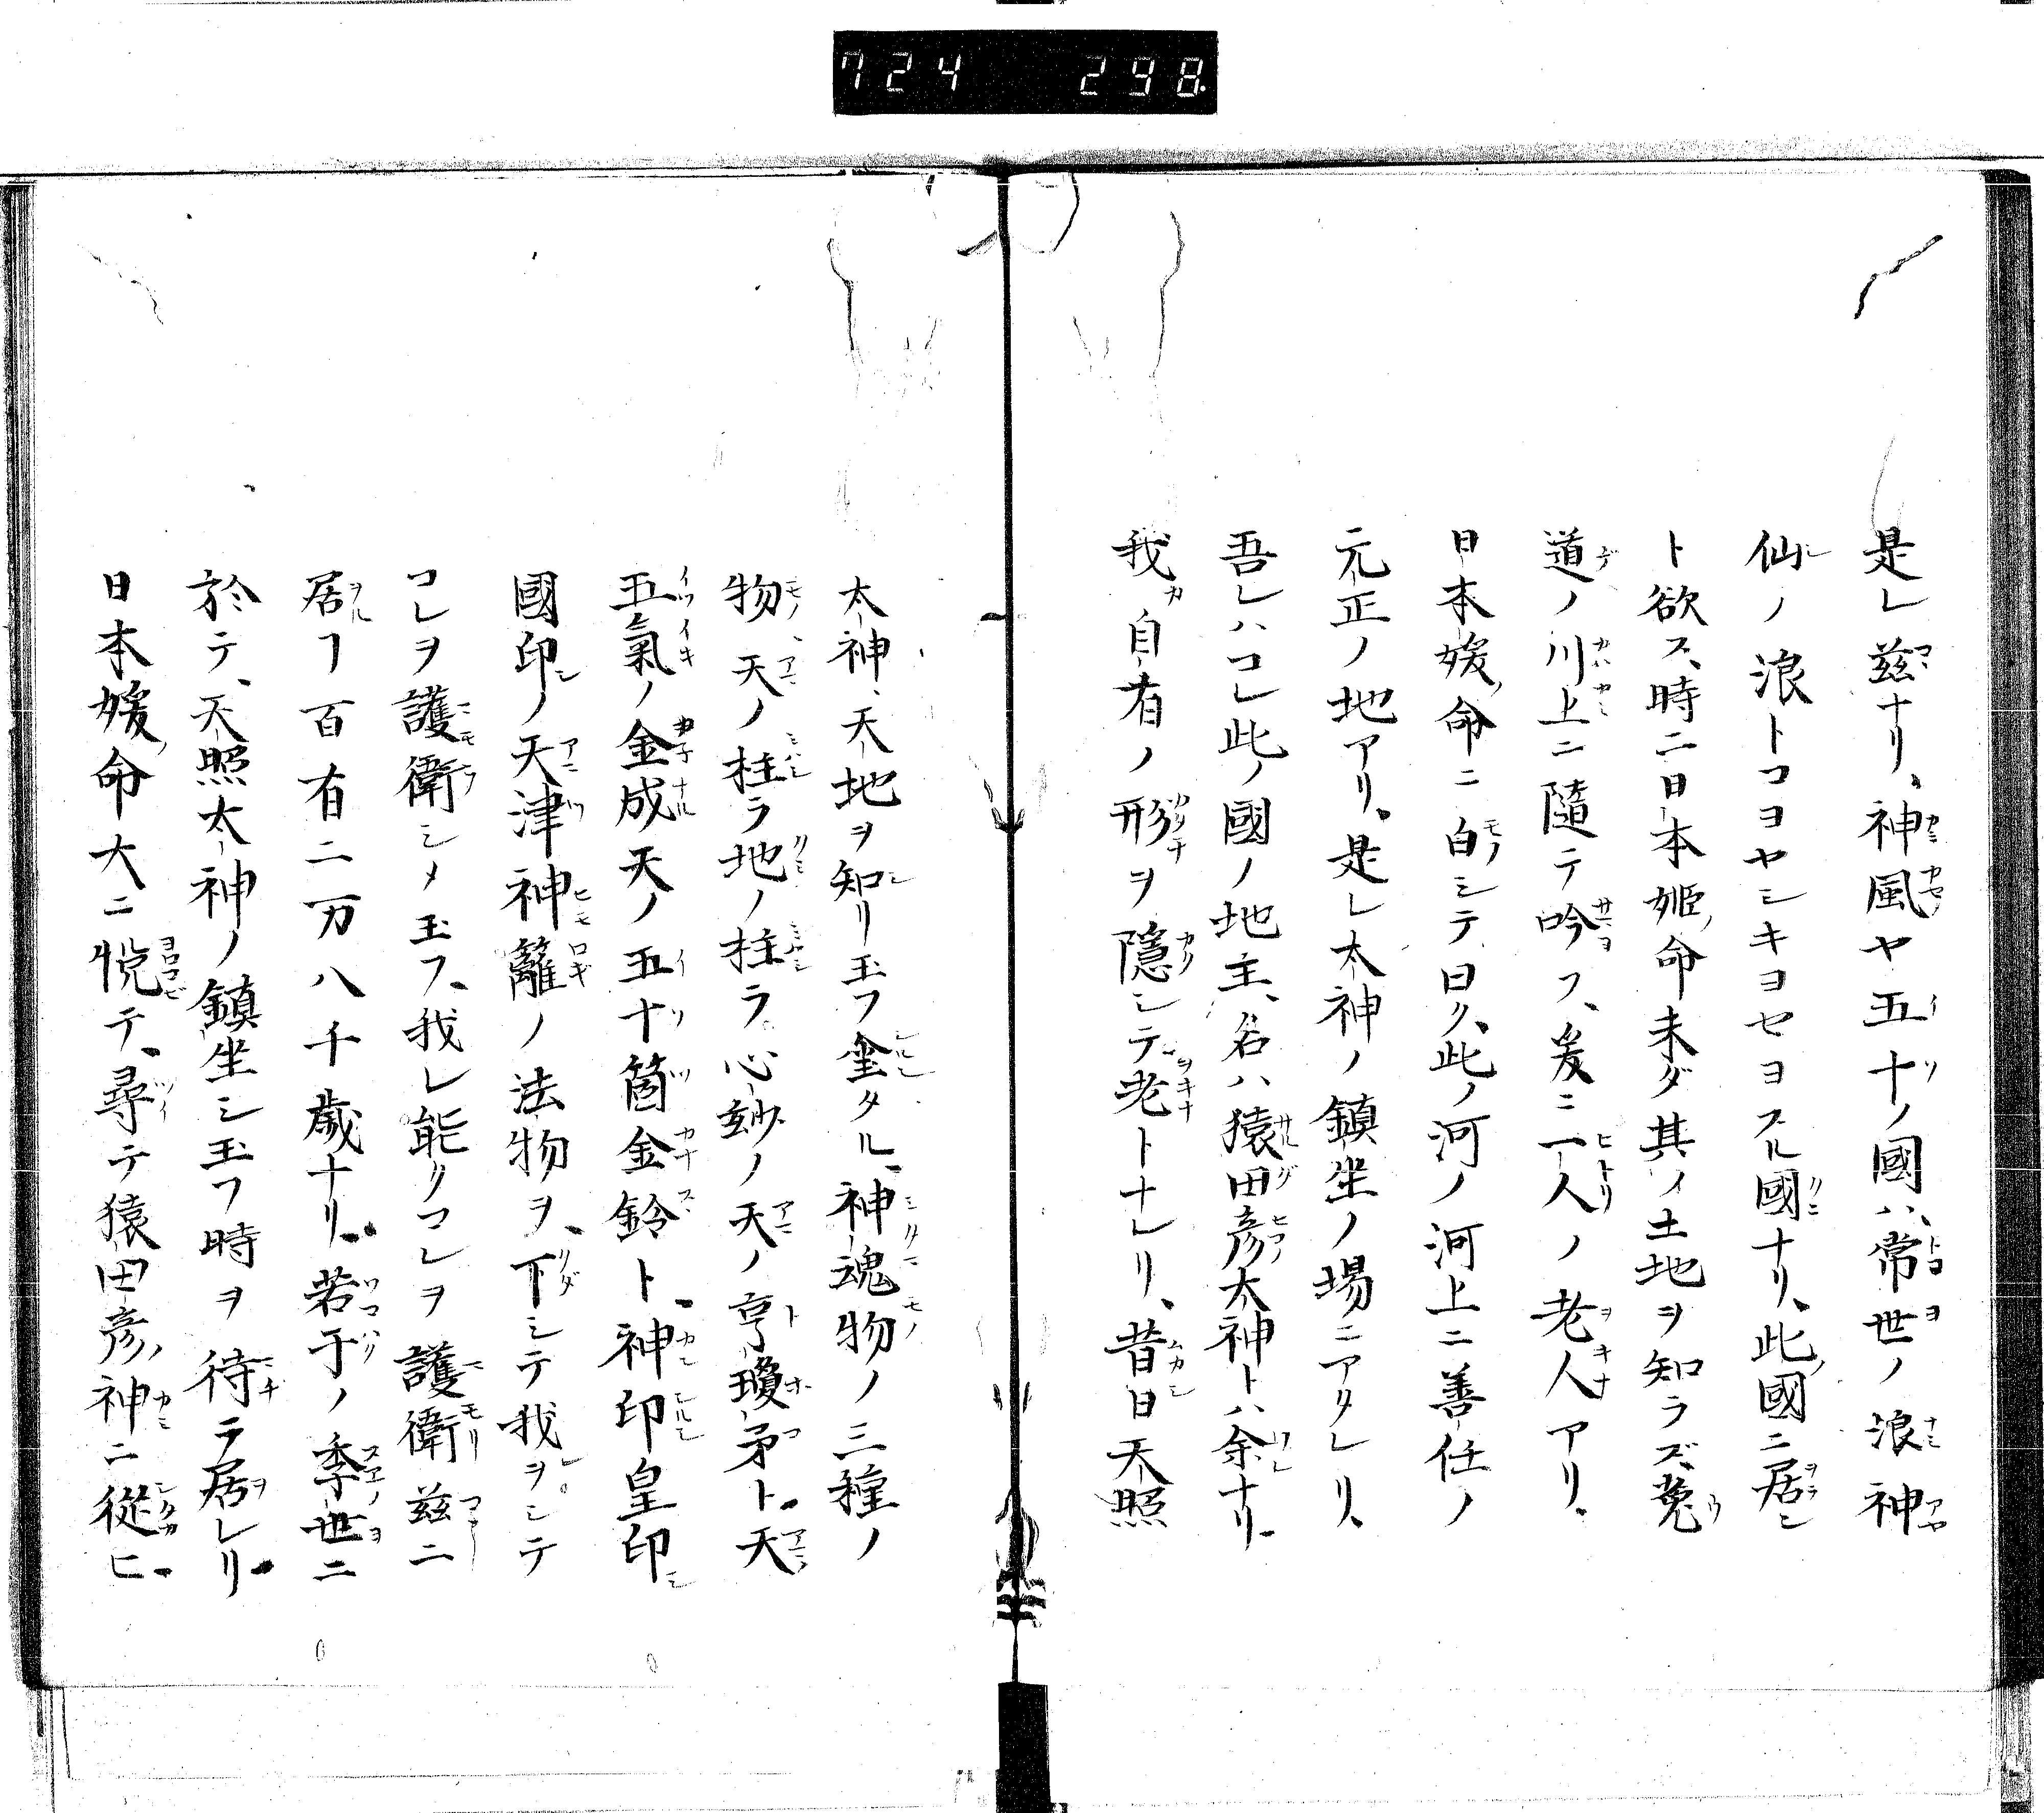 724 298
是レ茲ナリ、神風ヤ五十ノ國ハ、常世ノ浪神
仙ノ浪トコヨヤシキヨセヨスル國ナリ、此ノ國ニ居ン
ト欲ス、時ニ日本姫ノ命未ダ其ノ土地ヲ知ラズ、菟
道ノ川上ニ隨テ吟フ、爰ニ一人ノ老人アリ、
日本媛ノ命ニ白シテ曰ク、此ノ河ノ河上ニ善任ノ
元正ノ地アリ、是レ太神ノ鎮坐ノ場ニアタレリ、
吾レハコレ此ノ國ノ地主、名ハ猿田彦太神トハ余ナリ、
我自有ノ形ヲ隱シテ老トナレリ、昔日天照
太神、天地ヲ知リ玉フ タル、神魂物ノ三種ノ
物、天ノ柱ラ地ノ柱ラ心妙ノ天ノ亨瓊矛ト、天
五氣ノ金成天ノ五十箇金鈴ト、神印皇印
國印ノ天津神籬ノ法物ヲ、下シテ我ヲシテ
コレヲ護衛シメ玉フ、我レ能クコレヲ護衛茲ニ
居フ百有二万八千歳ナリ、若于ノ季世ニ
於テ、天照太神ノ鎮坐シ玉フ時ヲ待テ居レリ、
日本媛ノ命大ニ悦テ、尋テ猿田彦ノ神ニ從ヒ、